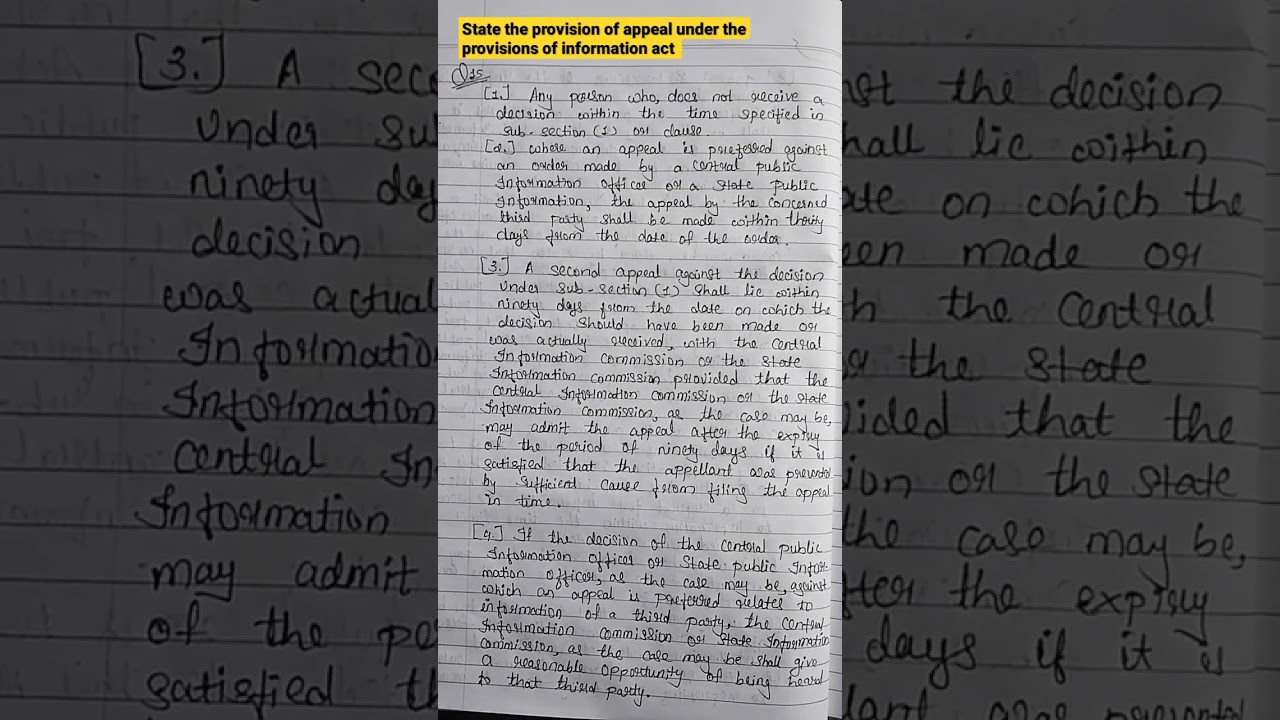 State the provision of appeal under the
provisions of information act
Q15
[1.] Any person who, does not receive a
decision within the time specified in
sub-section (1) or clause.
[2.] where an appeal is preferred against
an order made by a central public
Information officer or a state public
Information, the appeal by the concerned
third party shall be made within thirty
days from the date of the order.
[3.] A second appeal against the decision
under sub-section (1) shall lie within
ninety days from the date on which the
decision should have been made or
was actually received, with the central
Information commission or the state
Information commission provided that the
central Information commission or the state
Information commission, as the case may be,
may admit the appeal after the expiry
of the period of ninety days if it is
satisfied that the appellant was prevented
by sufficient cause from filing the appeal
in time.
[4.] If the decision of the central public
Information officer or state public Infor-
mation officer, as the case may be, against
which an appeal is preferred relates to
information of a third party, the central
Information commission or state Information
commission, as the case may be shall give
a reasonable opportunity of being heard
to that third party.